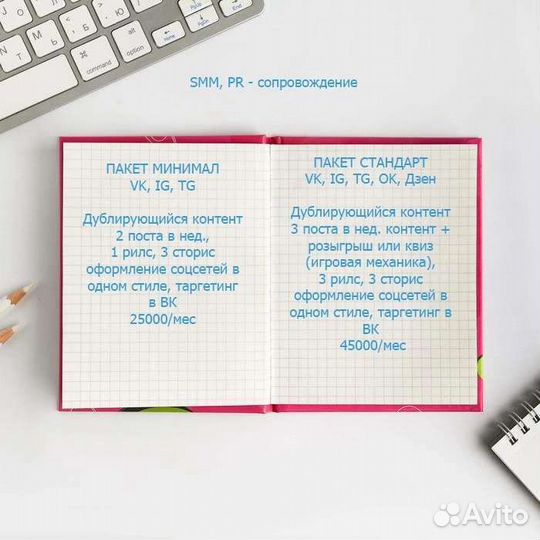 SMM, PR - сопровождение
ПАКЕТ МИНИМАЛ
VK, IG, TG
Дублирующийся контент
2 поста в нед.,
1 рилс, 3 сторис
оформление соцсетей в
одном стиле, таргетинг
в ВК
25000/мес
ПАКЕТ СТАНДАРТ
VK, IG, TG, OK, Дзен
Дублирующийся контент
3 поста в нед. контент +
розыгрыш или квиз
(игровая механика),
3 рилс, 3 сторис
оформление соцсетей в
одном стиле, таргетинг в
ВК
45000/мес
Home
PgUp
PgDn
End
control
option
command
alt
Ю
Б
Ь
Avito